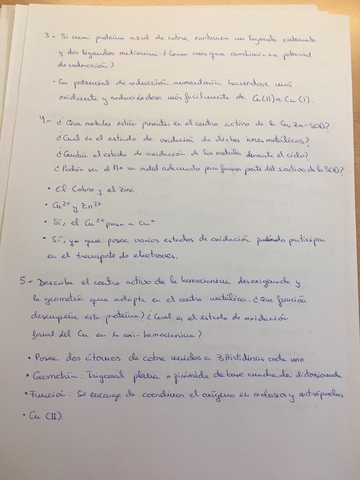 3- Si una proteína azul de cobre contuviera un ligando cisteinato
y dos ligandos metionina ¿Como crees que cambiaría su potencial
de reducción?
• Su potencial de reducción aumentaría haciendose más
oxidante y reduciéndose más facilmente de Cu(II) a Cu (I).
4- ¿Que metales están presentes en el centro activo de la Cu,Zn-SOD?
¿Cual es el estado de oxidación de dichos iones metálicos?
¿Cambia el estado de oxidación de los metales durante el ciclo?
¿Podría ser el Mn un metal adecuado para formar parte del s.activo de la SOD?
• El Cobre y el Zinc.
• Cu²⁺ y Zn²⁺
• Sí, el Cu²⁺ pasa a Cu⁺
• Sí, ya que posee varios estados de oxidación pudiendo participar
en el transporte de electrones.
5- Describa el centro activo de la hemocianina desoxigenada y
la geometría que adopta en el centro metálico. ¿Que función
desempeña esta proteína? ¿Cual es el estado de oxidación
formal del Cu en la oxi-hemocianina?
• Posee dos átomos de cobre unidos a 3 Histidinas cada uno
• Geometría: Trigonal plana o pirámide de base cuadrada distorsionada
• Función: Se encarga de coordinar el oxígeno en moluscos y artrópodos
• Cu (II).